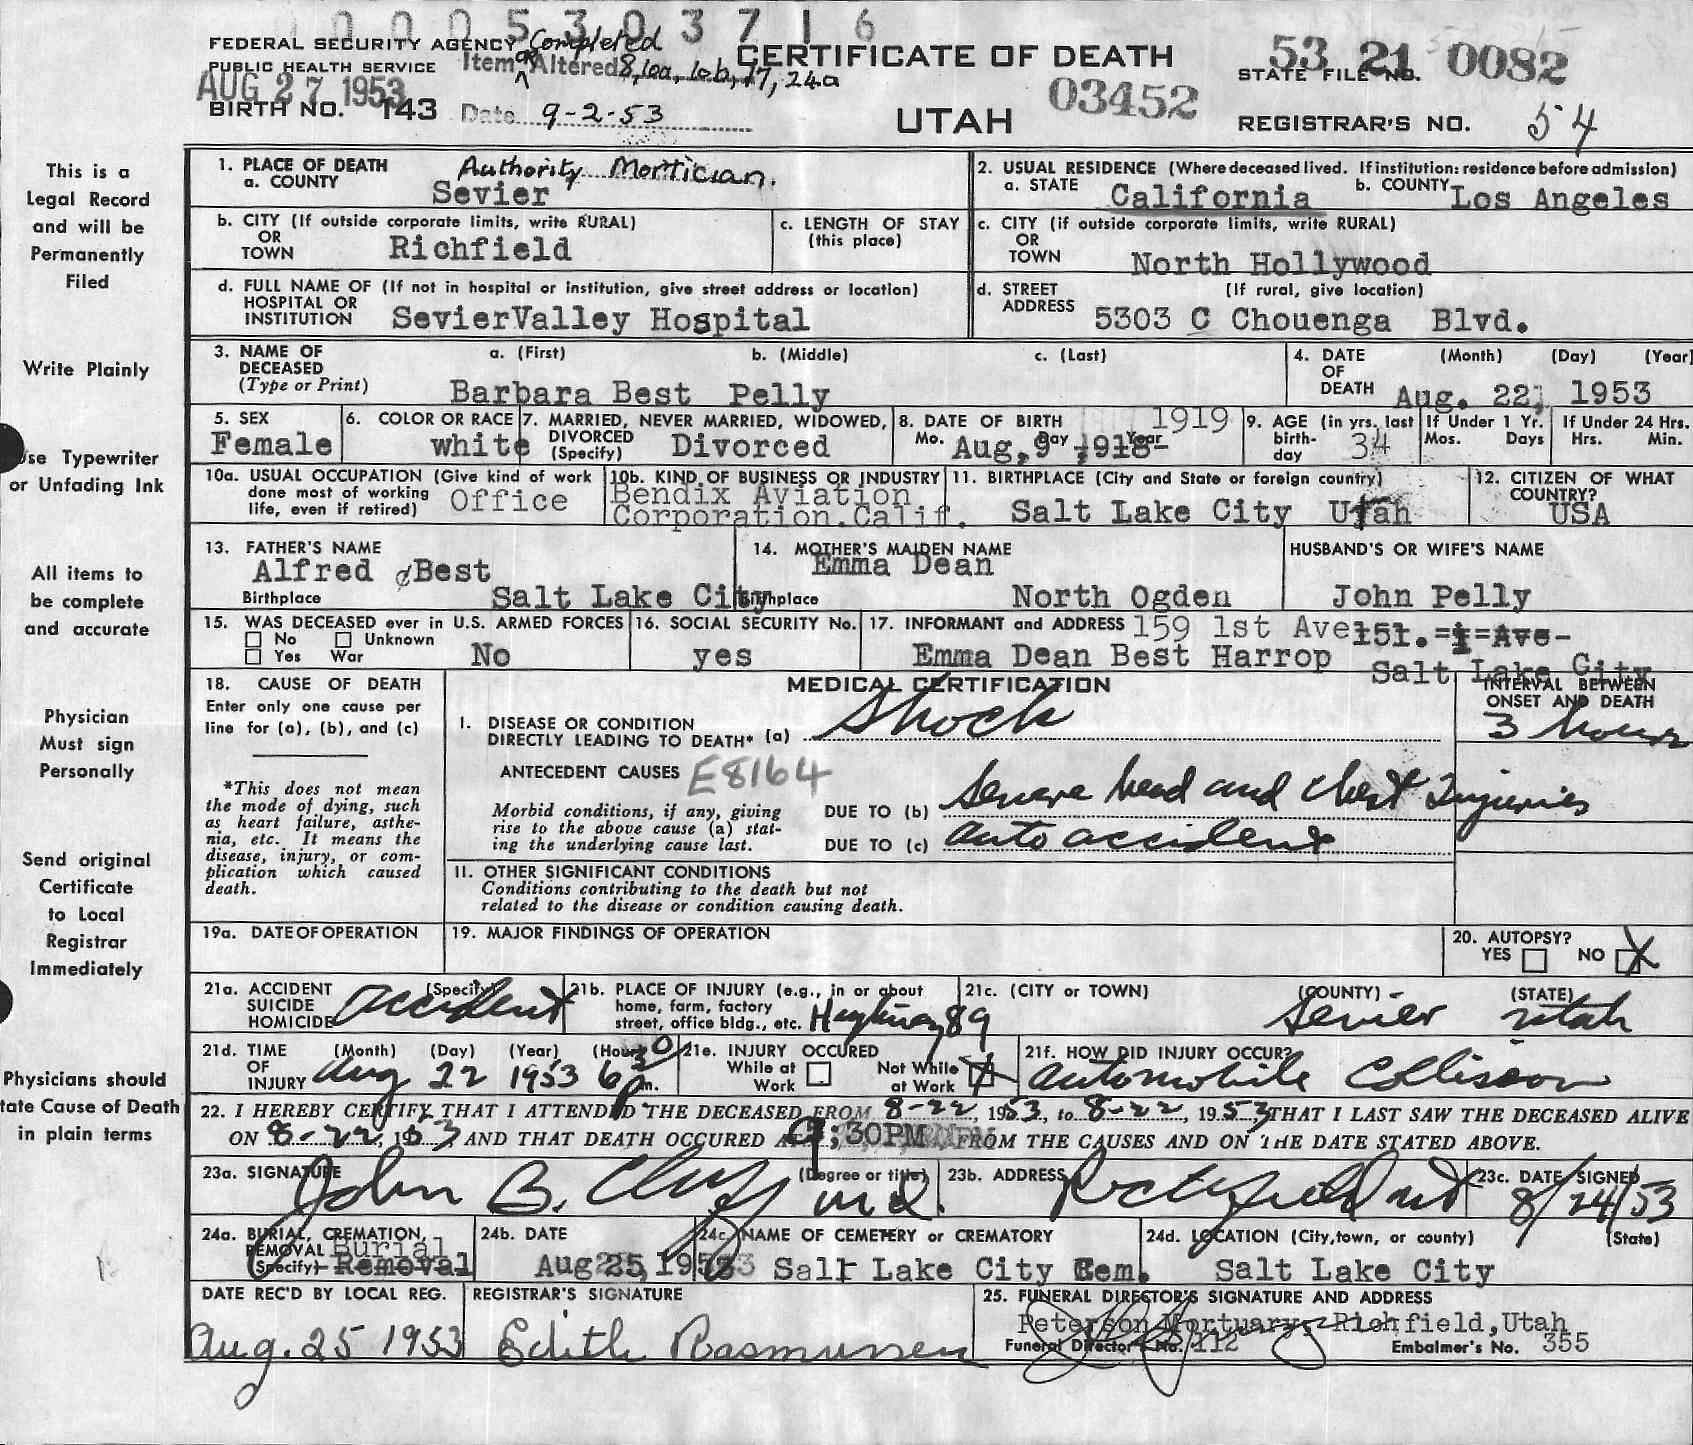 0005303716
FEDERAL SECURITY AGENCY
PUBLIC HEALTH SERVICE
Completed
Item or Altered 8, 10a, 10b, 17, 24a
AUG 27 1953
BIRTH NO. 143
Date 9-2-53
CERTIFICATE OF DEATH
UTAH
03452
STATE FILE NO. 53 21 0082
REGISTRAR'S NO. 54
Authority Mortician.
This is a
Legal Record
and will be
Permanently
Filed
Write Plainly
Use Typewriter
or Unfading Ink
All items to
be complete
and accurate
Physician
Must sign
Personally
Send original
Certificate
to Local
Registrar
Immediately
Physicians should
tate Cause of Death
in plain terms
1. PLACE OF DEATH
a. COUNTY Sevier
2. USUAL RESIDENCE (Where deceased lived. If institution: residence before admission)
a. STATE California b. COUNTY Los Angeles
b. CITY (If outside corporate limits, write RURAL)
OR
TOWN Richfield
c. LENGTH OF STAY
(this place)
c. CITY (if outside corporate limits, write RURAL)
OR
TOWN North Hollywood
d. FULL NAME OF (If not in hospital or institution, give street address or location)
HOSPITAL OR
INSTITUTION SevierValley Hospital
d. STREET (If rural, give location)
ADDRESS 5303 C Chouenga Blvd.
3. NAME OF DECEASED (Type or Print)
a. (First) b. (Middle) c. (Last)
Barbara Best Pelly
4. DATE OF DEATH (Month) (Day) (Year)
Aug. 22, 1953
5. SEX
Female
6. COLOR OR RACE
white
7. MARRIED, NEVER MARRIED, WIDOWED,
DIVORCED (Specify) Divorced
8. DATE OF BIRTH 1919
Mo. Aug. Day 9 Year 1918
9. AGE (in yrs. last birth-day 34
If Under 1 Yr. Mos. Days
If Under 24 Hrs. Hrs. Min.
10a. USUAL OCCUPATION (Give kind of work
done most of working
life, even if retired) Office
10b. KIND OF BUSINESS OR INDUSTRY
Bendix Aviation
Corporation.Calif.
11. BIRTHPLACE (City and State or foreign country)
Salt Lake City Utah
12. CITIZEN OF WHAT COUNTRY?
USA
13. FATHER'S NAME
Alfred Best
Birthplace Salt Lake City
14. MOTHER'S MAIDEN NAME
Emma Dean
Birthplace North Ogden
HUSBAND'S OR WIFE'S NAME
John Pelly
15. WAS DECEASED ever in U.S. ARMED FORCES
No Unknown
Yes War No
16. SOCIAL SECURITY No.
yes
17. INFORMANT and ADDRESS 159 1st Ave 151. 1 Ave
Emma Dean Best Harrop
Salt Lake City
18. CAUSE OF DEATH
Enter only one cause per
line for (a), (b), and (c)
*This does not mean
the mode of dying, such
as heart failure, asthe-
nia, etc. It means the
disease, injury, or com-
plication which caused
death.
MEDICAL CERTIFICATION
INTERVAL BETWEEN
ONSET AND DEATH
I. DISEASE OR CONDITION
DIRECTLY LEADING TO DEATH* (a) Shock
3 hours
ANTECEDENT CAUSES E8164
Morbid conditions, if any, giving
rise to the above cause (a) stat-
ing the underlying cause last.
DUE TO (b) Severe head and chest Injuries
DUE TO (c) auto accident
11. OTHER SIGNIFICANT CONDITIONS
Conditions contributing to the death but not
related to the disease or condition causing death.
19a. DATE OF OPERATION
19. MAJOR FINDINGS OF OPERATION
20. AUTOPSY?
YES NO X
21a. ACCIDENT (Specify)
SUICIDE
HOMICIDE accident
21b. PLACE OF INJURY (e.g., in or about
home, farm, factory
street, office bldg., etc. Highway 89
21c. (CITY or TOWN) (COUNTY) (STATE)
Sevier Utah
21d. TIME OF INJURY (Month) (Day) (Year) (Hour)
Aug 22 1953 6 30 Pm.
21e. INJURY OCCURED
While at Work Not While at Work X
21f. HOW DID INJURY OCCUR?
Automobile Collision
22. I HEREBY CERTIFY THAT I ATTENDED THE DECEASED FROM 8-22, 1953, to 8-22, 1953 THAT I LAST SAW THE DECEASED ALIVE
ON 8-22, 1953 AND THAT DEATH OCCURED AT 9:30PM FROM THE CAUSES AND ON THE DATE STATED ABOVE.
23a. SIGNATURE (Degree or title)
John B. Cluff m.d.
23b. ADDRESS
Richfield ut
23c. DATE SIGNED
8/24/53
24a. BURIAL, CREMATION,
REMOVAL Burial
(Specify) Removal
24b. DATE
Aug 25, 1953
24c. NAME OF CEMETERY or CREMATORY
Salt Lake City Cem.
24d. LOCATION (City, town, or county) (State)
Salt Lake City
DATE REC'D BY LOCAL REG.
Aug. 25 1953
REGISTRAR'S SIGNATURE
Edith Rasmussen
25. FUNERAL DIRECTOR'S SIGNATURE AND ADDRESS
Peterson Mortuary, Richfield, Utah
Funeral Director's No. 112 Embalmer's No. 355